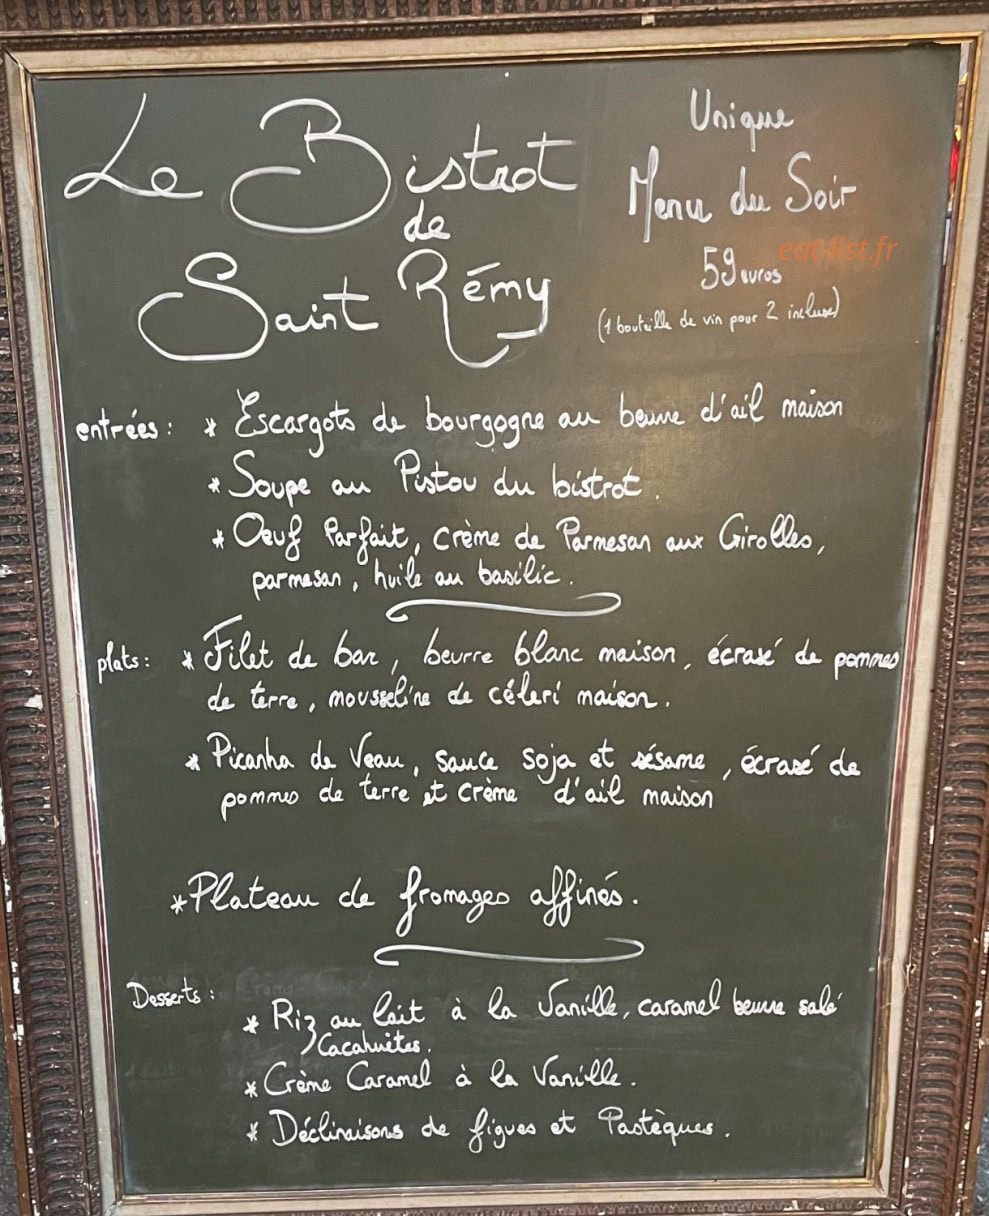 Le Bistrot
de
Saint Rémy
Unique
Menu du Soir
59 euros
eat-list.fr
(1 bouteille de vin pour 2 incluse)
entrées : * Escargots de bourgogne au beurre d'ail maison
* Soupe au Pistou du bistrot.
* Oeuf Parfait, crème de Parmesan aux Girolles,
parmesan, huile au basilic.
plats : * Filet de bar, beurre blanc maison, écrasé de pommes
de terre, mousseline de céleri maison.
* Picanha de Veau, sauce soja et sésame, écrasé de
pommes de terre et crème d'ail maison
* Plateau de fromages affinés.
Desserts :
* Riz au lait à la Vanille, caramel beurre salé
Cacahuètes.
* Crème Caramel à la Vanille.
* Déclinaisons de figues et Pastèques.